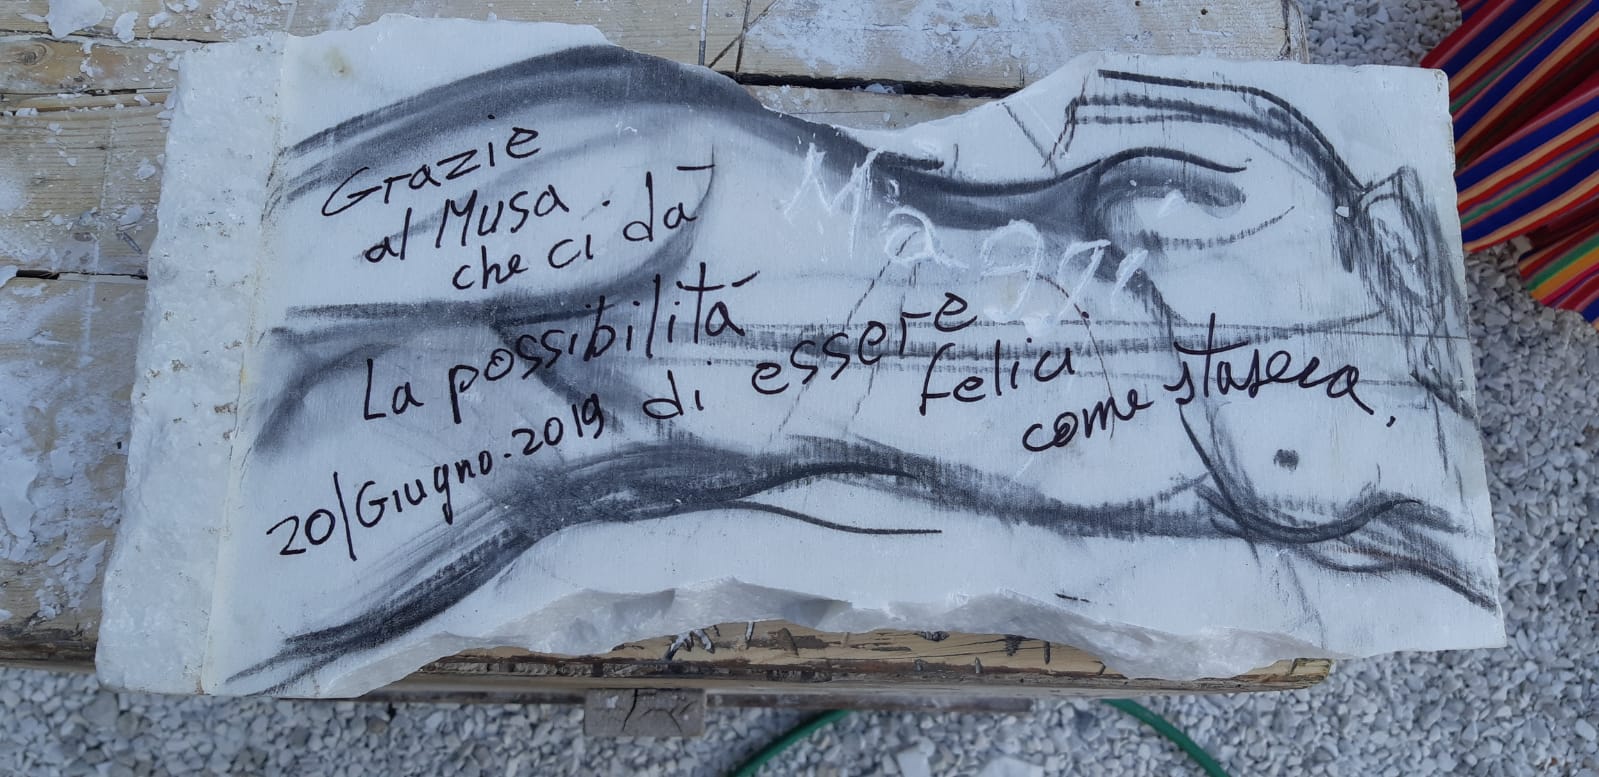 Grazie
al Musa.
che ci dà
La possibilitá
di essere
felici
come stasera,
20/Giugno.2019
Maggi